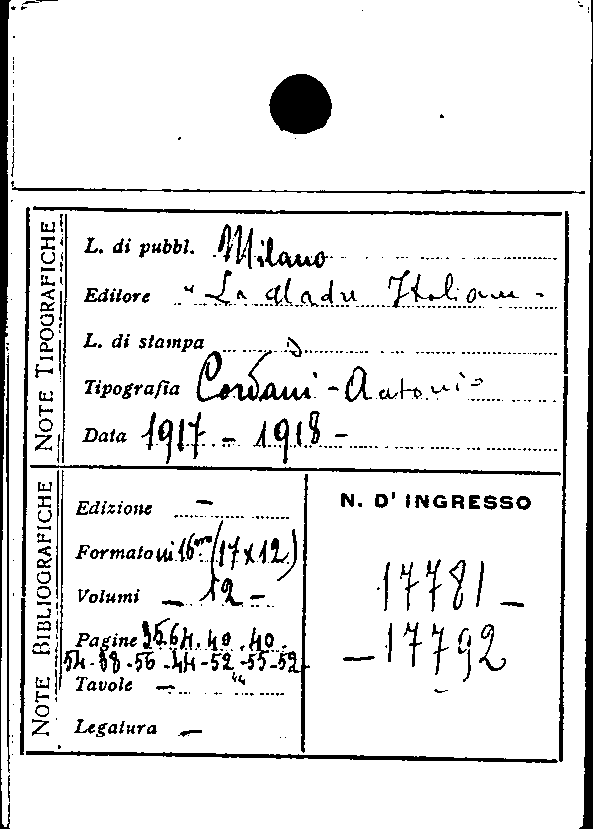 NOTE TIPOGRAFICHE
L. di pubbl. Milano
Editore "La Madre Italiana -
L. di stampa
Tipografia Cordani - Antonio
Data 1917 - 1918 -
NOTE BIBLIOGRAFICHE
Edizione -
Formato in 16mo (17x12)
Volumi - 12 -
Pagine 64. 40. 40.
54 - 38 - 56 - 44 - 52 - 55 - 52 -
44
Tavole -
Legatura -
N. D' INGRESSO
17781 -
- 17792